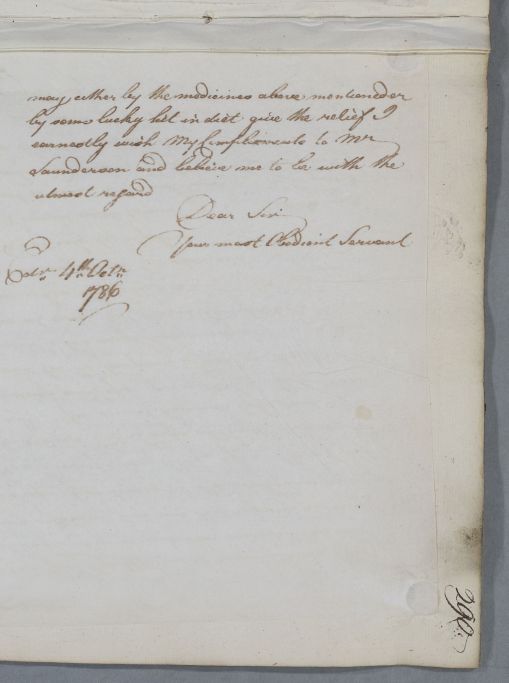 may either by the medicines above mentioned or
by some lucky hit in diet give the relief I
earnestly wish My Compliments to Mr
Saunderson and believe me to be with the
utmost regard
Dear Sir
Your most Obedient Servant
Edr. 4th. Octr.
1786
290.